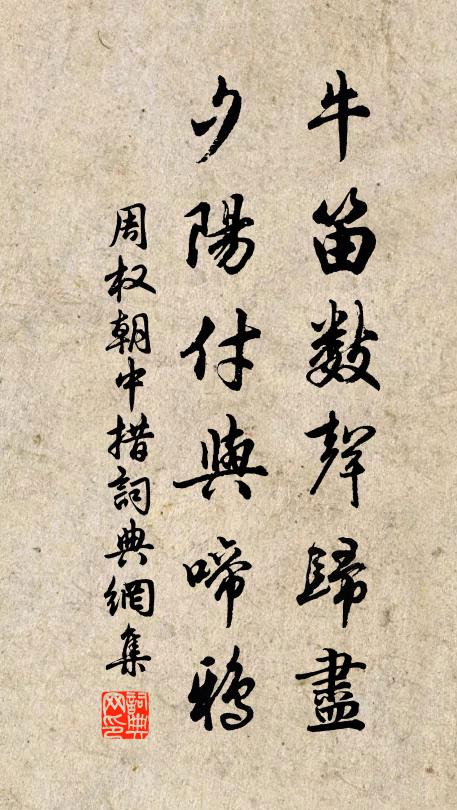 牛笛數聲歸盡
夕陽付與啼鴉
周权朝中措詞典網集
詞典
网印